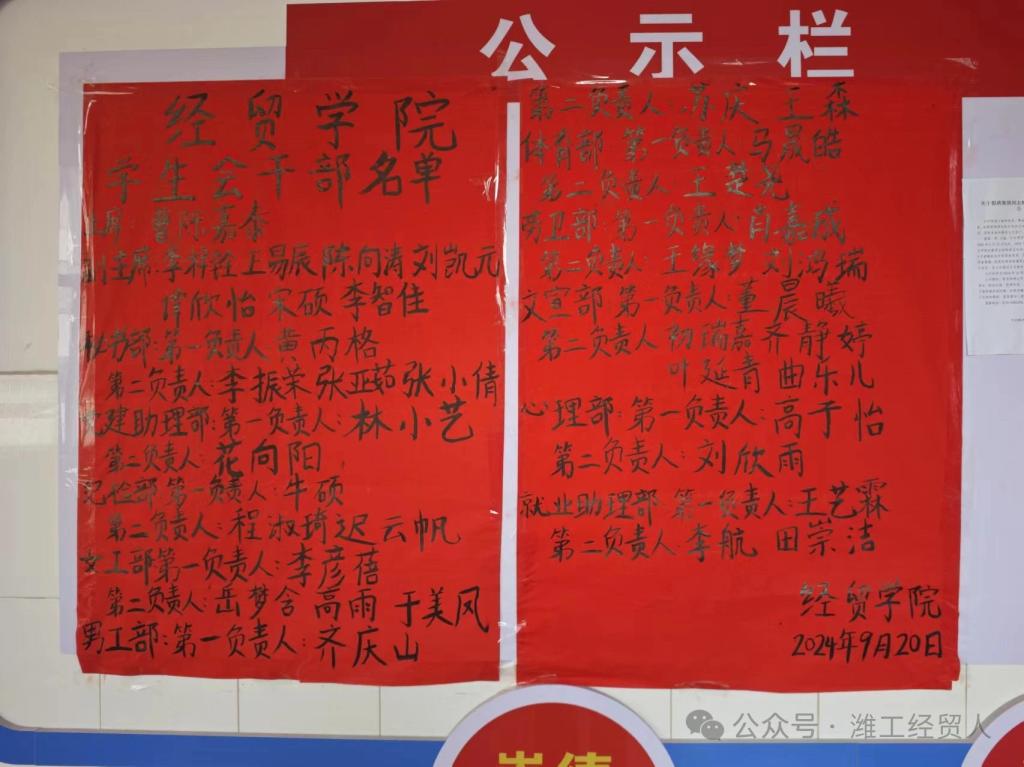 公示栏
经贸学院
学生会干部名单
主席:曹陈嘉泰
副主席:李梓诠王易辰陈向涛刘凯元
欣怡宋硕李智佳
秘书部:第一负责人黄丙格
第二负责人:李振荣张亚茹张小倩
党建助理部:第一负责人:林小艺
第二负责人:花向阳
纪检部第一负责人:牛硕
第二负责人:程淑琦迟云帆
女工部第一负责人:李彦蓓
第二负责人:岳梦含高雨于美风
男工部:第一负责人:齐庆山
第二负责人:庆王森
体育部第一负责人马晟皓
第二负责人王楚尧
劳卫部:第一负责人:肖嘉成
第二负责人:王缘梦刘鸿瑞
文宣部第一负责人:董晨曦
第二负责人瑞嘉齐静婷
叶延青曲乐儿
心理部:第一负责人:高于怡
第二负责人:刘欣雨
就业助理部:第一负责人:王艺霖
第二负责人:李航田崇洁
经贸学院
2024年9月20日
公众号·潍工经贸人